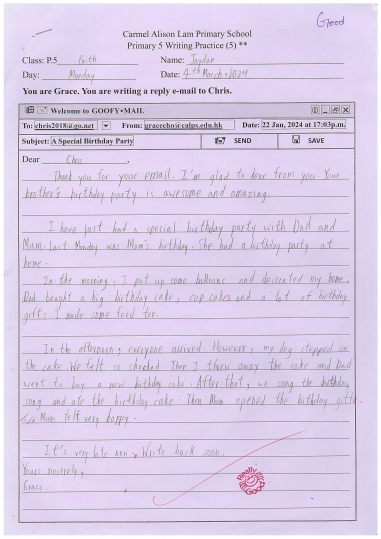 Good
Carmel Alison Lam Primary School
Primary 5 Writing Practice (5) **
Class: P.5 Faith Name: Jaydan
Day: Monday Date: 4th March, 2024
You are Grace. You are writing a reply e-mail to Chris.
Welcome to GOOFY•MAIL
To: chris2018@go.net From: gracecho@calps.edu.hk Date: 22 Jan, 2024 at 17:03p.m.
Subject: A Special Birthday Party SEND SAVE
Dear Chris,
Thank you for your email. I'm glad to hear from you. Your
brother's birthday party is awesome and amazing.
I have just had a special birthday party with Dad and
Mum. Last Monday was Mum's birthday. She had a birthday party at
home.
In the morning, I put up some balloons and decorated my home.
Dad bought a big birthday cake, cup cakes and a lot of birthday
gifts. I made some food too.
In the afternoon, everyone arrived. However, my dog stepped on
the cake. We felt so shocked. Then I threw away the cake and Dad
went to buy a new birthday cake. After that, we sang the birthday
song and ate the birthday cake. Then Mum opened the birthday gifts.
Mum felt very happy.
It's very late now. Write back soon.
Yours sincerely,
Grace
Really Good